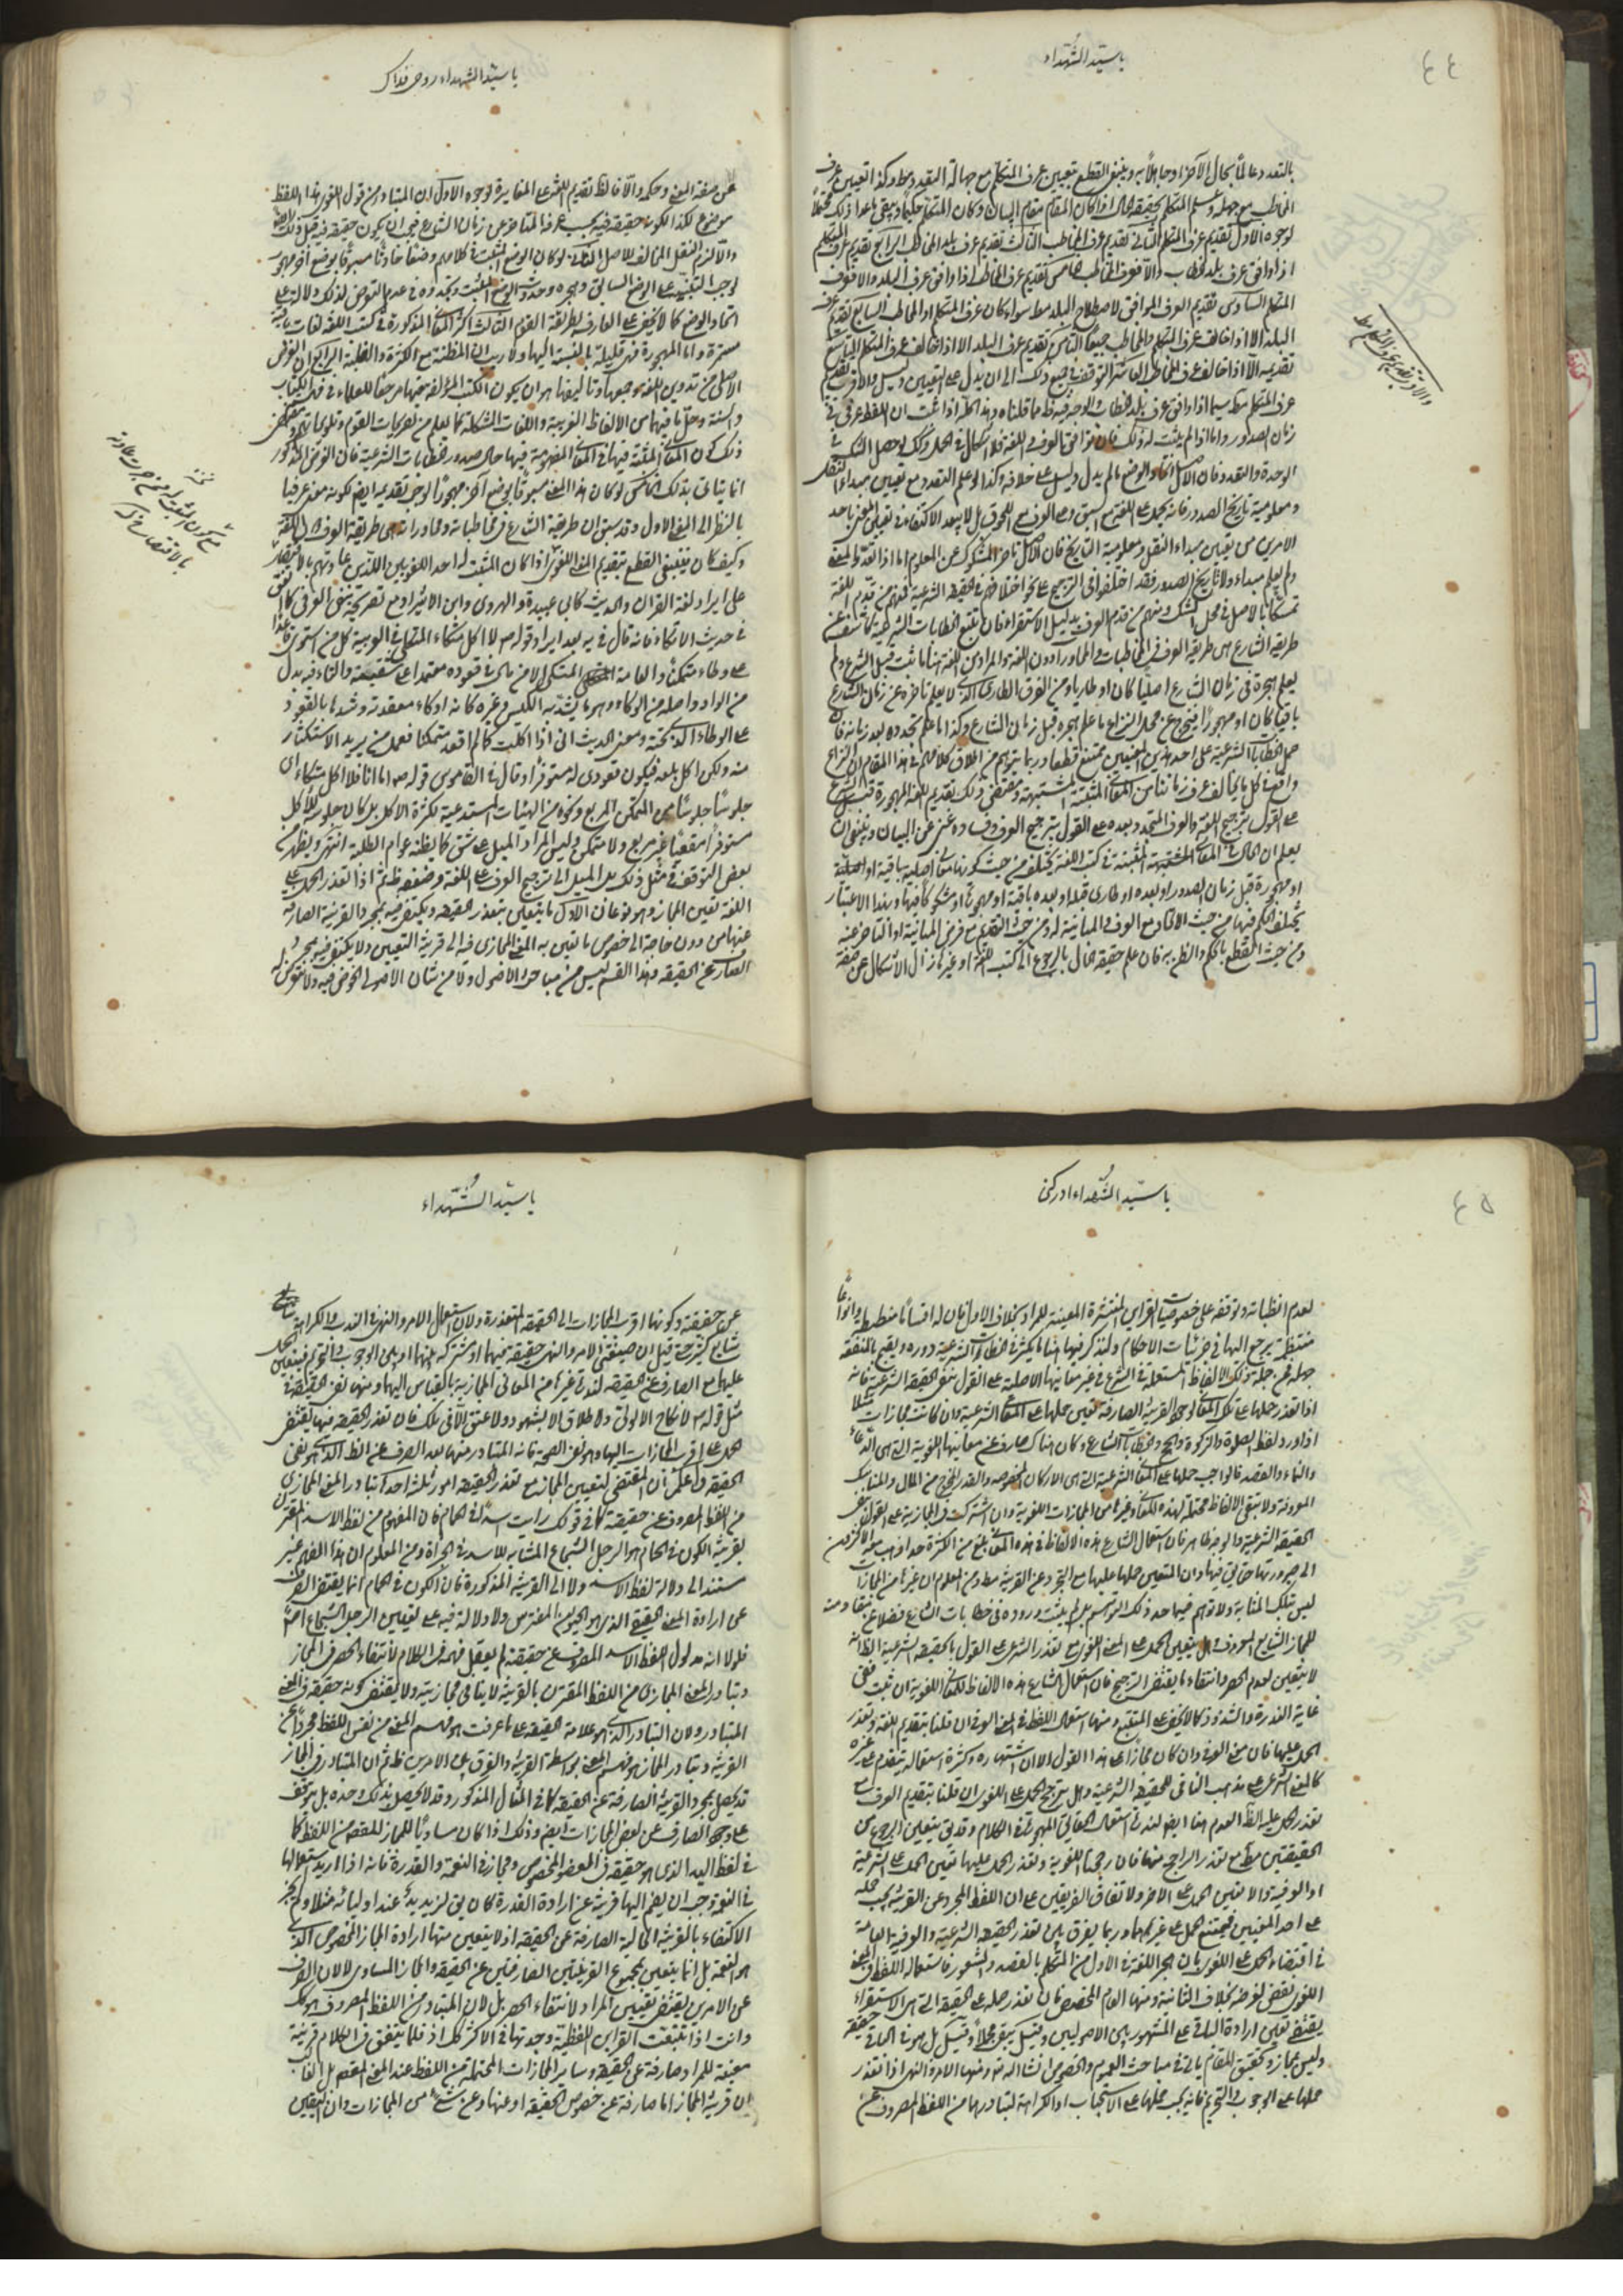 ٤٤
يا سيد الشهداء
بالتعدد عالماً بحال الآخر او جاهلاً به وينبغي القطع بتعيين عرف المتكلم مع جهالة التعدد وكذا تعيين عرف
المخاطب مع جهله وعلم المتكلم بحقيقة الحال اذا كان المقام مقام البيان وكان المتكلم حكيماً ويبقى ما عدا ذلك محتملاً
لوجوه الاول تقديم عرف المتكلم الثاني تقديم عرف المخاطب الثالث تقديم عرف بلد المخاطب الرابع تقديم عرف المتكلم
اذا وافق عرف بلد الخطاب والا فعرف المخاطب الخامس تقديم عرف المخاطب اذا وافق عرف البلد والا فعرف
المتكلم السادس تقديم العرف الموافق لاصطلاح البلد سواء كان عرف المتكلم او المخاطب السابع تقديم عرف
البلد الا اذا خالف عرف المتكلم والمخاطب جميعاً الثامن تقديم عرف البلد الا اذا خالف عرف المتكلم التاسع
تقديمه الا اذا خالف عرف المخاطب العاشر التوقف في جميع ذلك الى ان يدل على التعيين دليل والاقرب تقديم
عرف المتكلم سيما اذا وافق عرف بلد الخطاب والوجه فيه ما قلناه وهذا كله اذا ثبت ان اللفظ عرفي في
زمان الصدور واما اذا لم يثبت له ذلك فان توافق العرف واللغة فلا اشكال في الحمل وكذلك لو حصل الشك في
الوحدة والتعدد فان الاصل اتحاد الوضع ما لم يدل دليل على خلافه وكذا لو علم التعدد مع تعيين مبداء النقل
ومعلومية تاريخ الصدور فانه يحمل على اللغة مع السبق وعلى العرف مع اللحوق بل لا يبعد الاكتفاء في تعيين المعنى باحد
الامرين من تعيين مبداء النقل ومعلومية التاريخ فان الاصل تاخر المشكوك عن المعلوم اما اذا تعدد المعنى
ولم يعلم مبداء ولا تاريخ الصدور فقد اختلفوا في الترجيح على نحو اختلافهم في الحقيقة الشرعية فمنهم من قدم اللغة
تمسكاً بالاصل في محل الشك ومنهم من قدم العرف بدليل الاستقراء فان تتبع الخطابات الشرعية كاشف عن
طريقة الشارع هي طريقة العرف في المخاطبات والمحاورات دون اللغة والمراد من اللغة هنا ما ثبت قبل الشرع ولم
يعلم هجره في زمان الشارع اصلياً كان او طارياً ومن العرف الطاري الذي لا يعلم تاخره عن زمان الشارع
باقياً كان او مهجوراً فيخرج عن محل النزاع ما علم هجره قبل زمان الشارع وكذا ما علم تجدده بعد زمانه فان
حمل الخطابات الشرعية على احد هذين المعنيين ممتنع قطعا وربما يتوهم من اطلاق كلامهم في هذا المقام ان النزاع
واقع في كل ما يخالف عرف زماننا من المعاني المثبتة المشتبهة ومقتضى ذلك تقديم اللغة المهجورة قبل الشرع
على القول بترجيح اللغة والعرف المتجدد بعده على القول بترجيح العرف وفساده غني عن البيان وينبغي ان
يعلم ان الحال في المعاني المشتبهة المثبتة في كتب اللغة يختلف من حيث كونها معاني اصلية باقية او
او مهجورة قبل زمان الصدور او بعده او طاري قبله او بعده باقية او مهجورة او مشكوكاً فيها وبهذا الاعتبار
يختلف الحكم فيها من حيث الاتحاد مع العرف والمباينة له ومن حيث التقديم مع فرض المباينة او التاخر عنه
ومن حيث القطع بالحكم والظن به فان علم حقيقة الحال بالرجوع الى كتب اللغة او غيرها زال الاشكال عن صفة
يا سيد الشهداء روحي فداك
عن صفة المعنى وحكمه والا فالظ تقديم اللغة على المغايرة لوجوه الاول ان المتبادر من قول اللغوي هذا اللفظ
موضوع لكذا لكونه حقيقة فيه بحسب عرفه المتاخر عن زمان الشارع فيجب ان يكون حقيقة فيه قبل ذلك ايضا
والا لزم النقل المخالف للاصل الثاني لو كان الوضع المثبت في كلامهم وضعاً حادثاً مسبوقاً بوضع آخر مهجور
لوجب التنبيه على الوضع السابق وهجره وحدوث الوضع المثبت وتجدده ففي عدم التعرض لذلك دلالة على
اتحاد الوضع كما لا يخفى على العارف بطريقة القوم الثالث اكثر المعاني المذكورة في كتب اللغة لغات باقية
مستمرة واما المهجورة فهي قليلة بالنسبة اليها ولا ريب ان المظنة مع الكثرة والغلبة الرابع ان الغرض
الاصلي من تدوين اللغة وجمعها وتاليفها هو ان يكون الكتب المؤلفة فيها مرجعاً للعلماء في فهم الكتاب
والسنة وحل ما فيها من الالفاظ الغريبة واللغات المشكلة كما يعلم من تصريحات القوم وتلويحاتهم ومقتضى
ذلك كون المعاني المثبتة فيها هي المعاني المفهومة فيها حال صدور الخطابات الشرعية فان الغرض المذكور
انما يتاتى بذلك الخامس لو كان هذا المعنى مسبوقاً بوضع آخر مهجوراً لوجب تقديمه ايضا لكونه معنى عرفياً
بالنظر الى المعنى الاول وقد سبق ان طريقة الشارع في مخاطباته ومحاوراته هي طريقة العرف لا اللغة
وكيف كان فينبغي القطع بتقديم المعنى اللغوي اذا كان المثبت له احد اللغويين اللذين عادتهم بالاقتصار
على ايراد لغة القران والحديث كابي عبيدة والهروي وابن الاثير او مع تصريحه بنفي العرفي كما اتفق
في حديث الاتكاء فانه قال في يه بعد ايراد قوله ص لا اكل متكاء المتكئ في العربية كل من استوى قاعدا
على وطاء متمكناً والعامة لا تعرف المتكئ الا من مال في قعوده معتمدا على احد شقيه والتاء فيه بدل
من الواو واصله من الوكاء وهو ما يشد به الكيس وغيره كانه اوكاء مقعدته وشدها بالقعود
على الوطاء الذي تحته ومعنى الحديث اني اذا اكلت كما لم اقعد متمكنا فعل من يريد الاستكثار
منه ولكن اكل بلغة فيكون قعودي له مستوفزاً وقال في القاموس قوله ص اما انا فلا اكل متكاء اي
جلوساً على جلوس المتمكن المربع ونحوه من الهيئات المستدعية لكثرة الاكل بل كان جلوسه للاكل
مستوفزاً مقعياً غير مربع ولا متمكن وليس المراد الميل على شق كما يظنه عوام الطلبة انتهى ويظهر من
بعض التوقف في مثل ذلك بل الميل الى ترجيح العرف على اللغة وضعفه ظ ثم اذا تعذر الحمل على
اللغة تعين المجاز وهو نوعان الاول ما يتعين بتعذر الحقيقة ويكتفى فيه بمجرد القرينة الصارفة
عنها من دون حاجة الى خصوص ما تعين به المعنى المجازي فيه الى قرينة التعيين ولا يكتفى فيه بمجرد
الصارف عن الحقيقة وهذا القسم ليس من مباحث الاصول ولا من شان الاصولي الخوض فيه ولا التعرض له
٤٥
يا سيد الشهداء ادركني
لعدم انضباطه وتوقفه على خصوصيات القراين المنتشرة المعينة للمراد بخلاف الاول فان له اقساماً منضبطة وانواعاً
منتظمة يرجع اليها في جزئيات الاحكام ولنذكر فيها هنا ما يكثر في الخطابات الشرعية دوره ويقع بالتفقه
جهله فمن جملة ذلك الالفاظ المستعملة في الشرع في غير معانيها الاصلية على القول بنفي الحقيقة الشرعية فانه
اذا تعذر حملها على تلك المعاني لوجود القرينة الصارفة تعين حملها على المعاني الشرعية وان كانت مجازات مثلا
اذا ورد لفظ الصلوة والزكوة والحج في خطابات الشارع وكان هناك صارف عن معانيها اللغوية التي هي الدعاء
والنماء والقصد فالواجب حملها على المعاني الشرعية التي هي الاركان المخصوصة والقدر المخرج من المال والمناسك
المعروفة ولا تبقى الالفاظ محتملة لهذه المعاني وغيرها من المجازات اللغوية وان اشتركت في المجازية على القول بنفي
الحقيقة الشرعية والوجه ظاهر فان استعمال الشارع هذه الالفاظ في هذه المعاني بلغ من الكثرة حدا ذهب معه الاكثرون
الى صيرورتها حقايق فيها وان المتعين حملها عليها مع التجرد عن القرينة ومن المعلوم ان غيرها من المجازات
ليس بتلك المثابة ولا توهم فيها احد ذلك التوهم بل لم يثبت وروده في خطابات الشارع فضلا عن مقاومته
للمجاز الشايع المعروف وهل يتعين الحمل على المعنى اللغوي مع تعذر الشرعي على القول بالحقيقة الشرعية الظ انه
لا يتعين لعدم الحصر وانتفاء ما يقتضي الترجيح فان استعمال الشارع هذه الالفاظ للمعاني اللغوية ان ثبت ففي
غاية الندرة والشذوذ كما لا يخفى على المتتبع ومنها استعمال اللفظ في المعنى العرفي ان قلنا بتقديم اللغة وتعذر
الحمل عليها فان معنى العرفي وان كان مجازا على هذا القول الا ان اشتهاره وكثرة استعماله يتقدم على غيره
كالمعنى الشرعي على مذهب النافي للحقيقة الشرعية وهل يترجح الحمل على اللغوي ان قلنا بتقديم العرف مع
تعذر الحمل عليه الظ العدم هنا ايضا لندرة استعمال الحقايق المهجورة في الكلام وقد يق يتعين الرجوع من
الحقيقتين مع تعذر الراجح منهما فان رجحنا اللغوية وتعذر الحمل عليها تعين الحمل على الشرعية
او العرفية والا تعين الحمل على الآخر ولاتفاق الفريقين على ان اللفظ المجرد عن القرينة يجب حمله
على احد المعنيين فيمتنع الحمل على غيرهما وربما يفرق بين تعذر الحقيقة الشرعية والعرفية العامة
في اقتضاء الحمل على اللغوي بان هجر اللغة في الاول من المتكلم بالقصد والشعور فاستعماله اللفظ في المعنى
اللغوي نقض لغرضه بخلاف الثانية ومنها العام المخصص فان تعذر حمله على الحقيقة التي هي الاستغراق
يقتضي تعين ارادة الباقي على المشهور بين الاصوليين وقيل يبقى مجملا وقيل بل هو في الباقي حقيقة
وليس بمجاز وتحقيق المقام ياتي في مباحث العموم والخصوص انشاء الله تعالى ومنها الامر والنهي اذا تعذر
حملها على الوجوب والتحريم فانه يجب حملها على الاستحباب او الكراهة لتبادرهما من اللفظ المصروف عن
يا سيد الشهداء
عن حقيقته وكونهما اقرب المجازات الى الحقيقة المتعذرة ولان استعمال الامر والنهي في الندب والكراهة شايع
شايع كثير حتى قيل ان صيغتي الامر والنهي حقيقة فيهما او مشتركة بينهما وبين الوجوب والتحريم فيتعين الحمل
عليهما مع الصارف عن الحقيقة لندرة غيرهما من المعاني المجازية بالقياس اليهما ومنها نفي الحقيقة في
مثل قوله لا نكاح الا بولي ولا طلاق الا بشهود ولا عتق الا في ملك فان تعذر الحقيقة فيها يقتضي
الحمل على اقرب المجازات اليها وهو نفي الصحة فانه المتبادر منها بعد الصرف عن الظ الذي هو نفي
الحقيقة واعلم ان المقتضي لتعيين المجاز مع تعذر الحقيقة امور ثلثة احدها تبادر المعنى المجازي
من اللفظ المصروف عن حقيقته كما في قولك رايت اسداً في الحمام فان المفهوم من لفظ الاسد المقترن
بقرينة الكون في الحمام هو الرجل الشجاع المشابه للاسد في الجراة ومن المعلوم ان هذا الفهم غير
مستند الى دلالة لفظ الاسد ولا الى القرينة المذكورة فان الكون في الحمام انما يقتضي الصرف
عن ارادة المعنى الحقيقي الذي هو الحيوان المفترس ولا دلالة فيه على تعيين الرجل الشجاع اصلاً
فلولا انه مدلول اللفظ الاسد المصروف عن حقيقته لم يعقل فهمه في الكلام لانتفاء الحصر في المجاز
وتبادر المعنى المجازي من اللفظ المقترن بالقرينة لا ينافي مجازيته ولا يقتضي كونه حقيقة في المعنى
المتبادر ولان التبادر الذي هو علامة الحقيقة على ما عرفت هو فهم المعنى من نفس اللفظ مجرداً عن
القرينة وتبادر المجاز هو فهم المعنى بواسطة القرينة والفرق بين الامرين ظ ثم ان المتبادر في المجاز
قد يحصل بمجرد القرينة الصارفة عن الحقيقة كما في المثال المذكور وقد لا يحصل بذلك وحده بل يتوقف
على وجود الصارف عن بعض المجازات ايضا وذلك اذا كان مساوياً للمجاز المقصود من اللفظ كما
في لفظ اليد الذي هو حقيقة في العضو المخصوص ومجاز في النعمة والقدرة فانه اذا اريد استعمالها
في النعمة وجب ان يضم اليها قرينة عن ارادة القدرة كان يق لزيد يد عند اوليائه مثلا ولم يجز
الاكتفاء بالقرينة الحالية الصارفة عن الحقيقة اذ لا يتعين منها ارادة المجاز المخصوص الذي
هو النعمة بل انما يتعين بمجموع القرينتين الصارفتين عن الحقيقة والمجاز المساوي لا لان الصرف
عن الامرين يقتضي تعيين المراد لانتفاء الحصر بل لان المتبادر من اللفظ المصروف هو ذلك
وانت اذا تتبعت القراين اللفظية وجدتها في الاكثر كذلك اذ قلما يتفق في الكلام قرينة
معينة للمراد صارفة عن الحقيقة وساير المجازات المحتملة من اللفظ عند المعنى المقصود بل الغالب
ان قرينة المجاز اما صارفة عن خصوص الحقيقة او عنها وعن شيء من المجازات وان التعيين